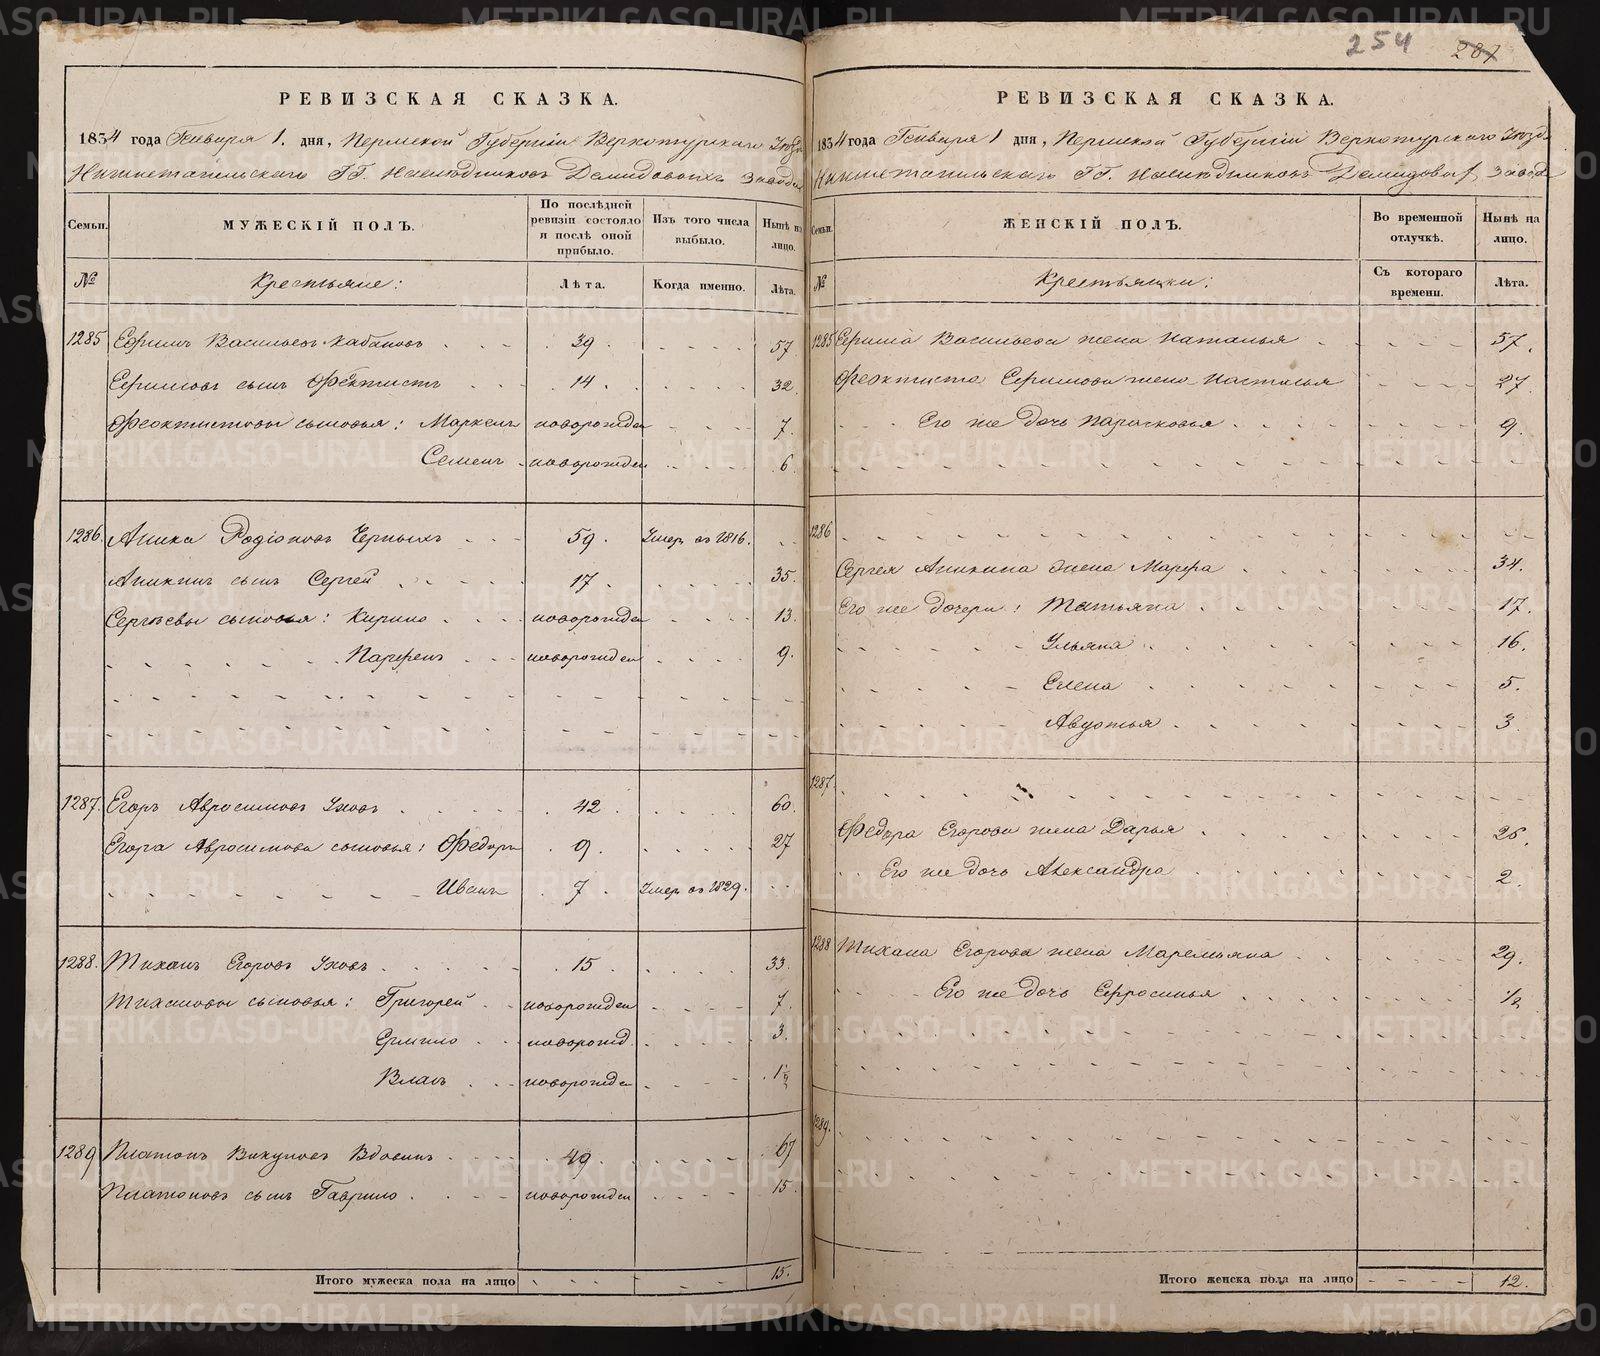 254 287
РЕВИЗСКАЯ СКАЗКА.
1834 года Генваря 1. дня, Пермской Губерніи Верхотурскаго Уѣзда
Нижнетагильскаго ГГ. Наслѣдниковъ Демидовыхъ завода
Семьи.
МУЖЕСКІЙ ПОЛЪ.
По послѣдней ревизіи состояло и послѣ оной прибыло.
Изъ того числа выбыло.
Нынѣ на лицо.
№
Крестьяне:
Лѣта.
Когда именно.
Лѣта.
1285 Ефимъ Васильевъ Кабановъ 39. 57
Ефимовъ сынъ Феоктистъ 14. 32
Феоктистовы сыновья: Маркелъ новорожден 7.
Семенъ новорожден 6
1286. Аника Родіоновъ Черныхъ 59. Умер. въ 1816.
Аникинъ сынъ Сергей 17. 35.
Сергѣевы сыновья: Кирило новорожден 13.
Парфенъ новорожден 9.
1287. Егоръ Авросимовъ Уховъ 42. 60.
Егора Авросимова сыновья: Федоръ 9. 27
Иванъ 7. Умер. въ 1829.
1288. Тиханъ Егоровъ Уховъ 15. 33.
Тихановы сыновья: Григорей новорожден 7.
Ермило новорожд 3.
Власъ новорожден 1½
1289 Платонъ Викуловъ Вдовинъ 49 67
Платоновъ сынъ Гаврило новорожден 15.
Итого мужеска пола на лицо 15.
РЕВИЗСКАЯ СКАЗКА.
1834 года Генваря 1 дня, Пермской Губерніи Верхотурскаго Уѣзда
Нижнетагильскаго ГГ. Наслѣдниковъ Демидовых завода
Семьи.
ЖЕНСКІЙ ПОЛЪ.
Во временной отлучкѣ.
Нынѣ на лицо.
№
Крестьянки:
Съ котораго времени.
Лѣта.
1285 Ефима Васильева жена Наталья 57.
Феоктиста Ефимова жена Настасья 27
Его же дочь Парасковья 9.
1286
Сергея Аникина жена Марфа 34.
Его же дочери: Татьяна 17.
Ульяна 16.
Елена 5.
Авдотья 3.
1287.
Федора Егорова жена Дарья 26.
Его же дочь Александра 2.
1288 Тихана Егорова жена Маремьяна 29.
Его же дочь Ефросинья ½
1289.
Итого женска пола на лицо 12.
METRIKI.GASO-URAL.RU